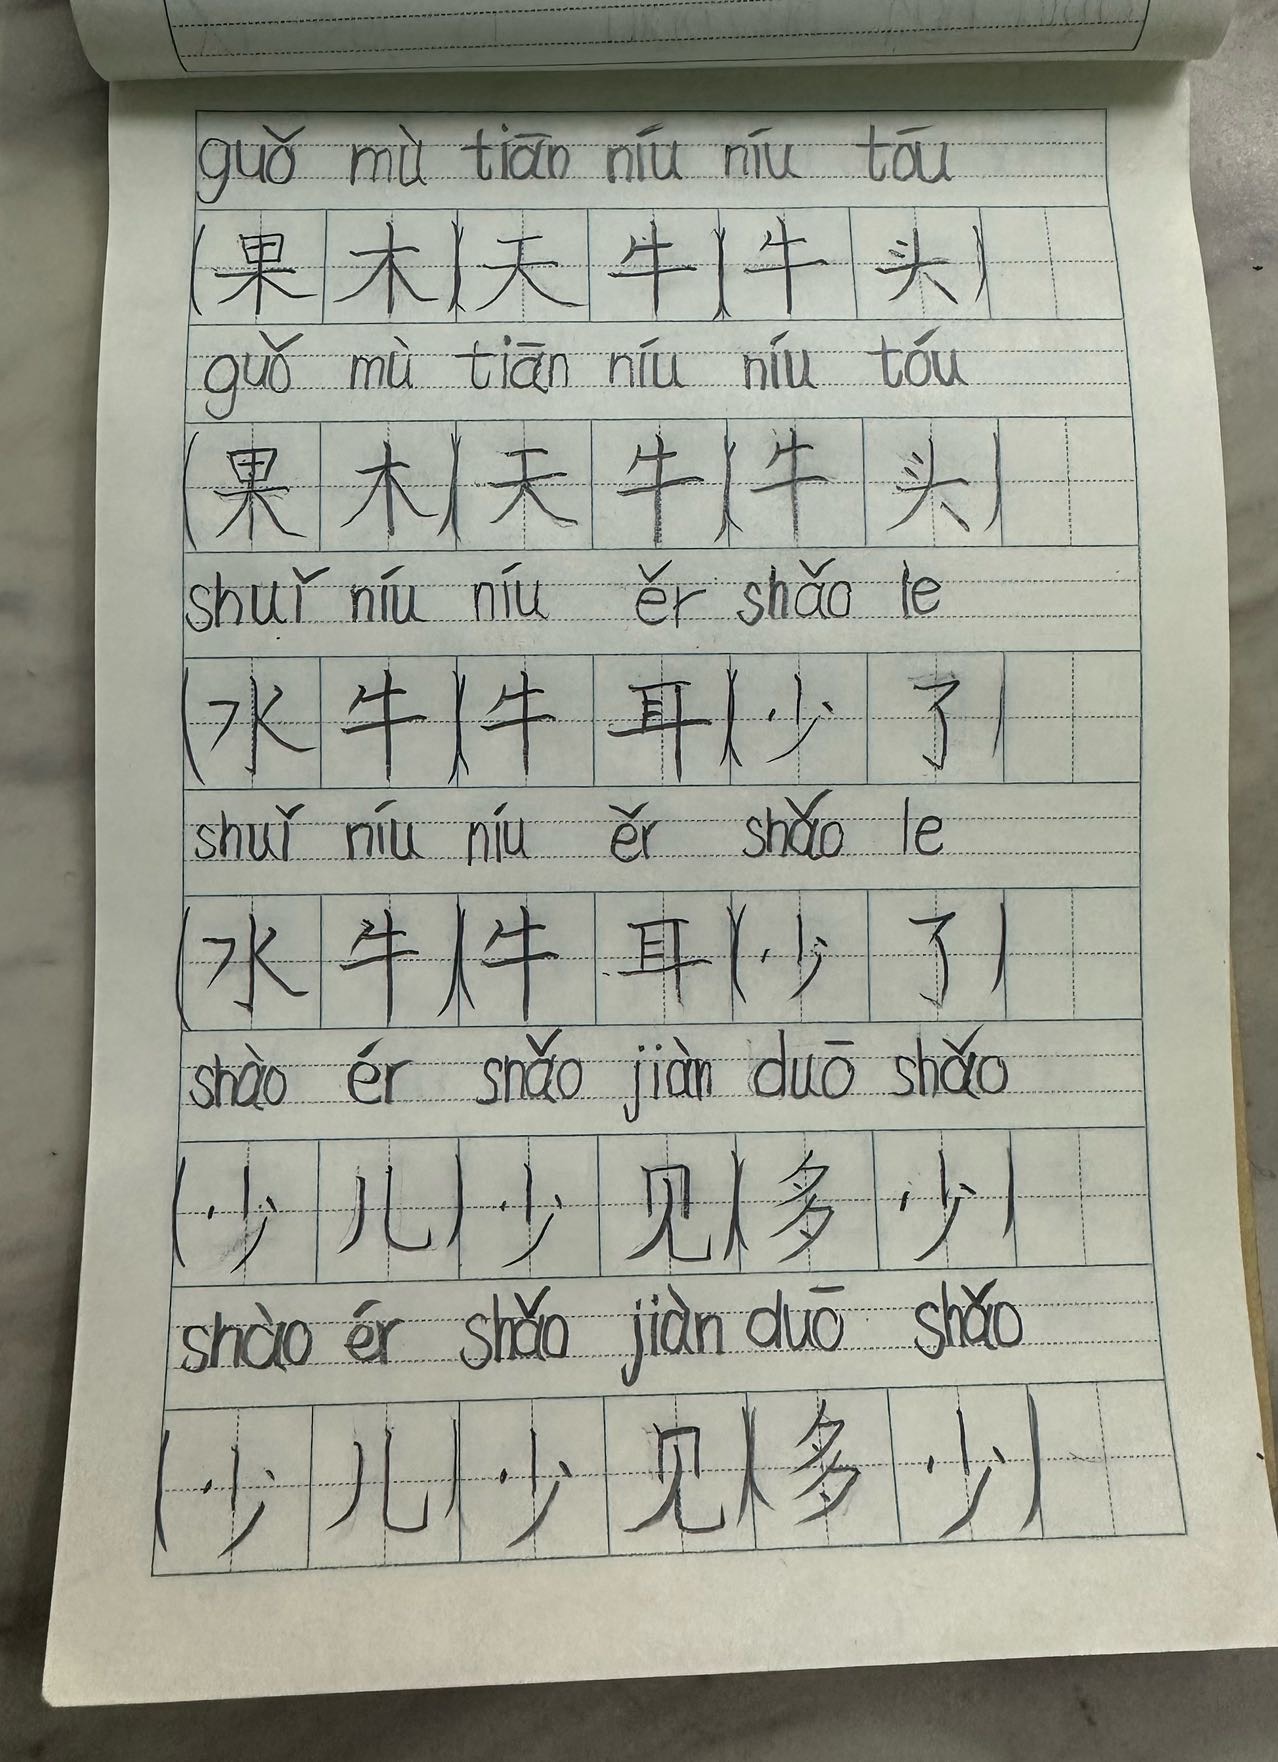 guǒ mù tiān níu níu tóu
(果木)(天牛)(牛头)
guǒ mù tiān níu níu tóu
(果木)(天牛)(牛头)
shuǐ níu níu ěr shǎo le
(水牛)(牛耳)(少了)
shuǐ níu níu ěr shǎo le
(水牛)(牛耳)(少了)
shào ér shǎo jiàn duō shǎo
(少儿)少见)(多少)
shào ér shǎo jiàn duō shǎo
(少儿)少见)(多少)